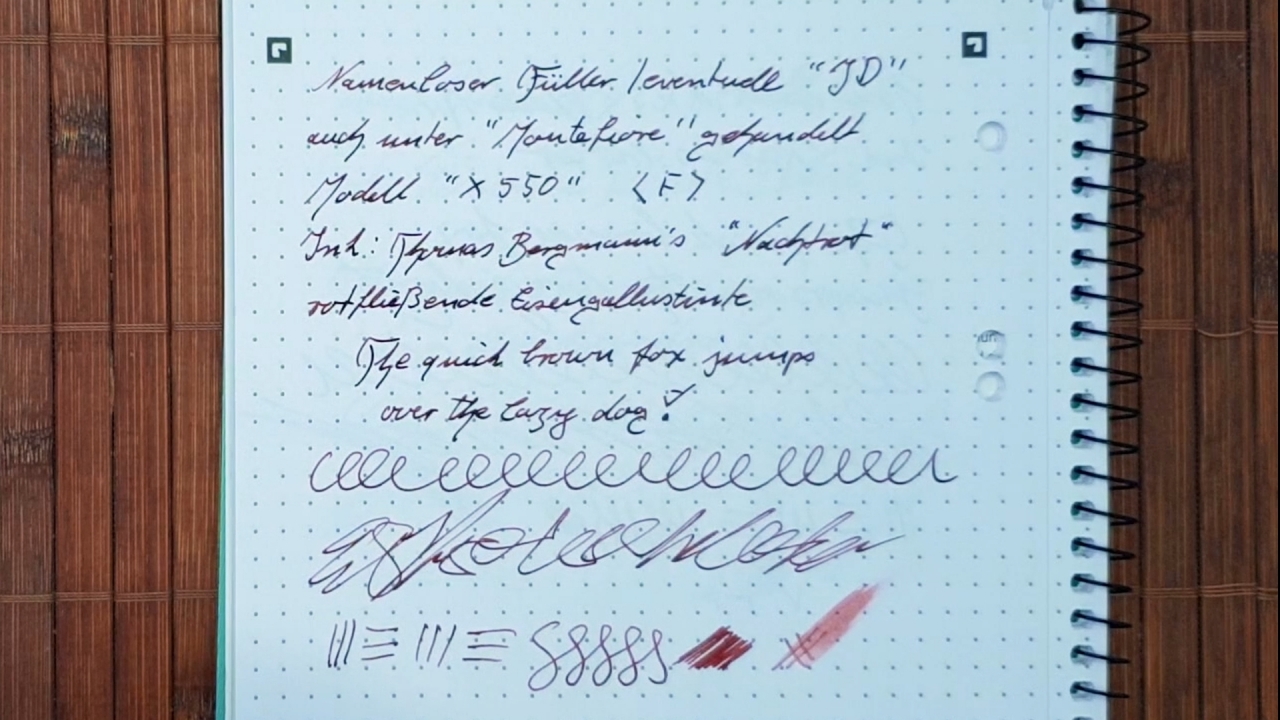 Namenloser Füller / eventuell "JD"
auch unter "Montefiore" gehandelt
Modell "X 550" <F>
Ink: Thomas Bergmann's "Nachtrot"
rotfließende Eisengallustinte
The quick brown fox jumps
over the lazy dog!